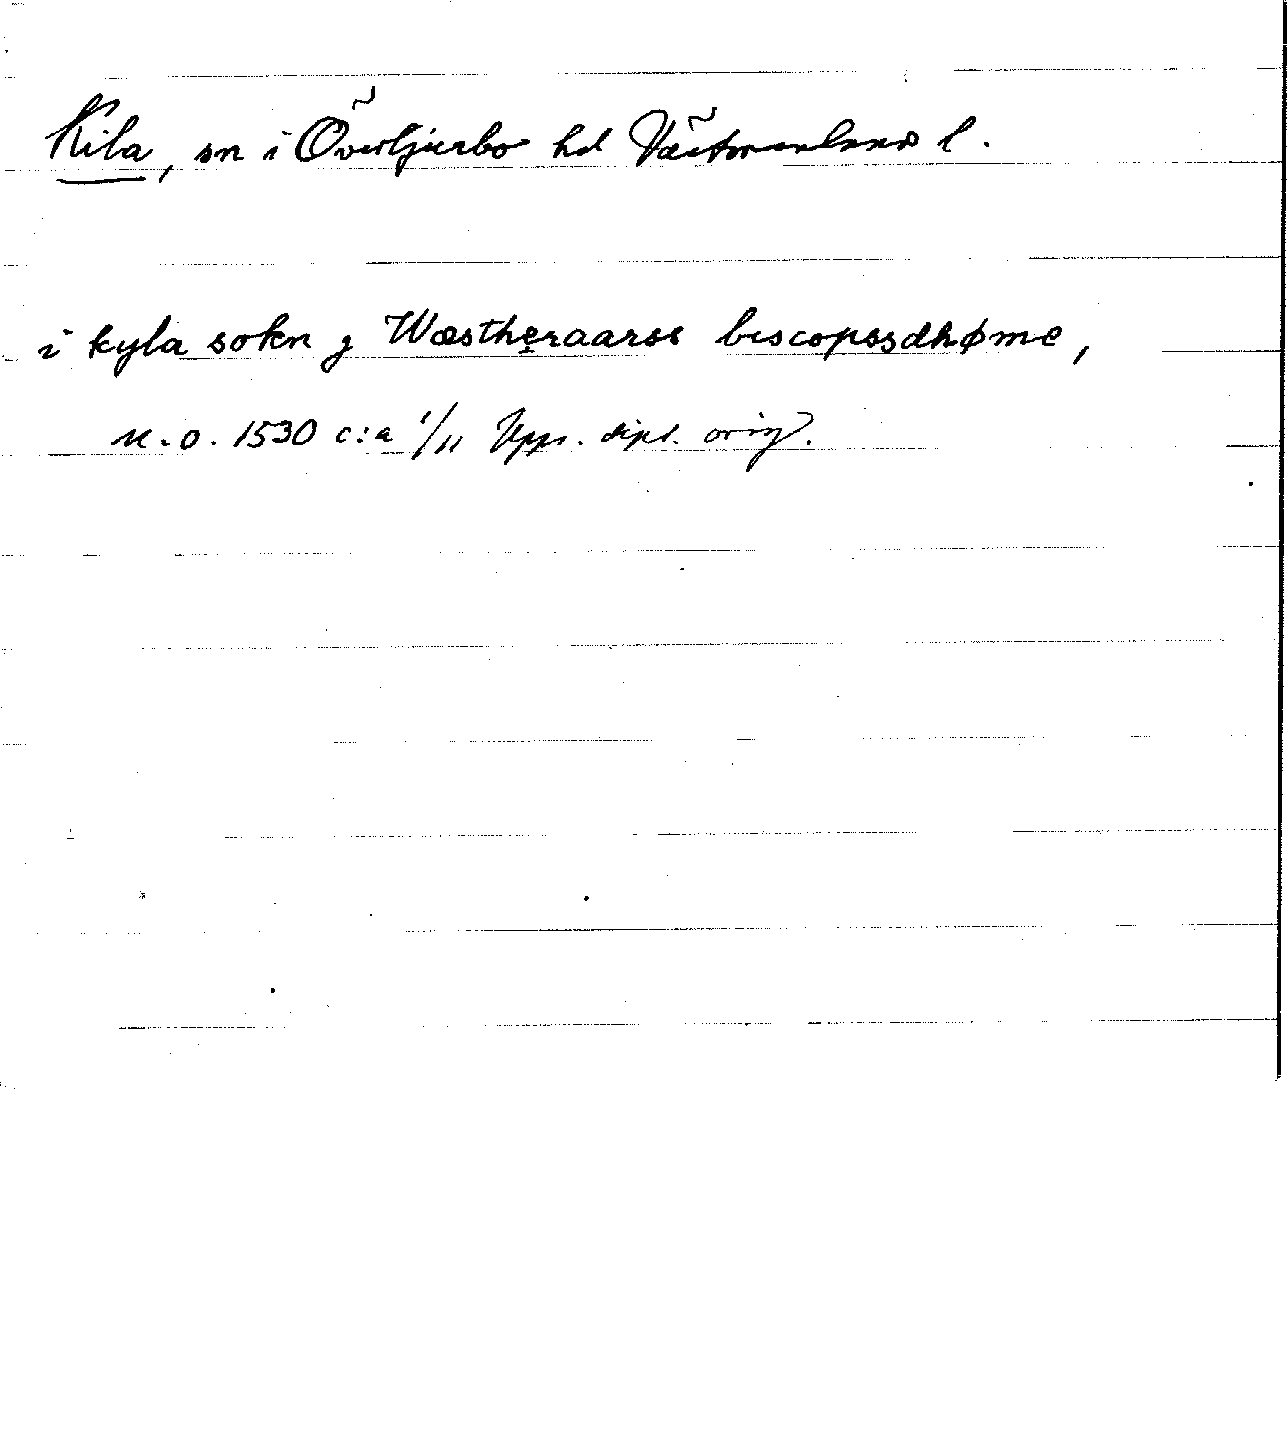 Kila, sn i Övertjurbo hd Västmanlands l.
i kyla sokn j Wæstheraarss biscopssdhøme,
u.o. 1530 c:a 1/11 Upps. dipl. orig.